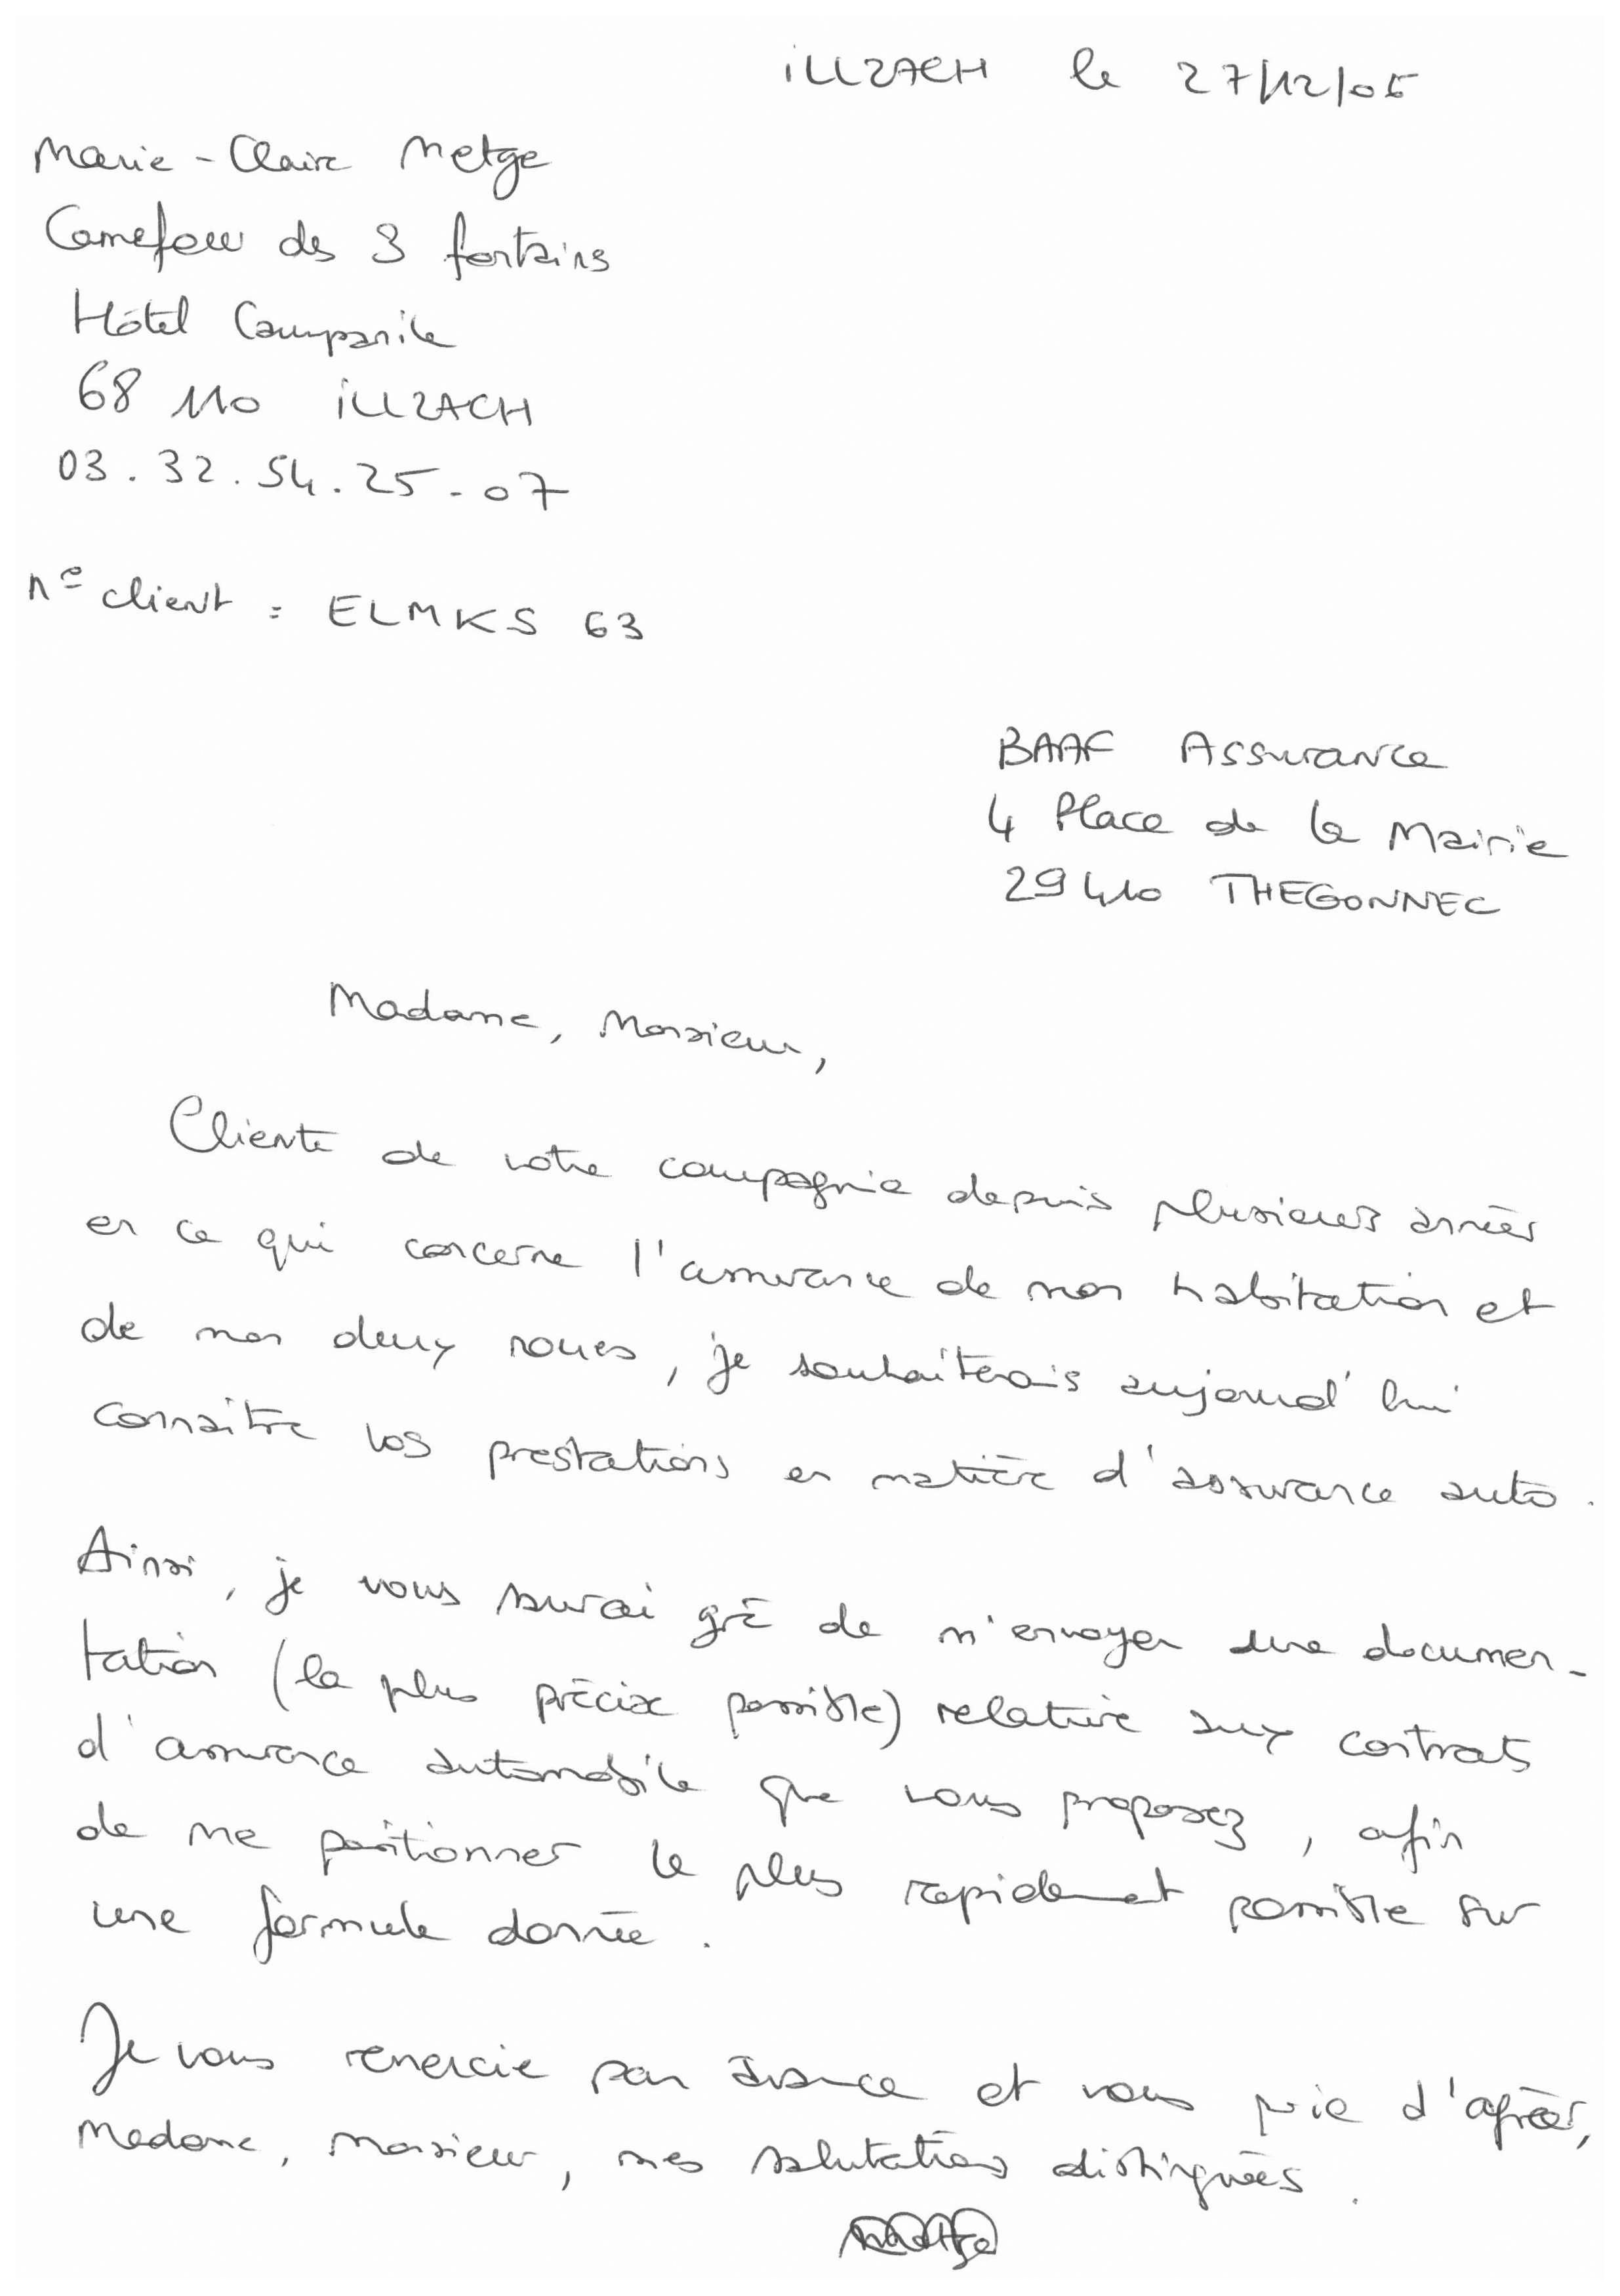 iLLZACH le 27/12/05
Marie-Claire Metge
Carrefour des 3 fontains
Hôtel Campanile
68 110 iLLZACH
03.32.54.25.07
n° client : ELMKS 63
BAAF Assurance
4 Place de la Mairie
29410 THEGONNEC
Madame, Monsieur,
Cliente de votre compagnie depuis plusieurs années
en ce qui concerne l'assurance de mon habitation et
de mon deux roues, je souhaiterais aujourd'hui
connaître vos prestations en matière d'assurance auto.
Ainsi, je vous saurai gré de m'envoyer une documen-
tation (la plus précise possible) relative aux contrats
d'assurance automobile que vous proposez, afin
de me positionner le plus rapidement possible sur
une formule donnée.
Je vous remercie par avance et vous prie d'agréer,
Madame, Monsieur, mes salutations distinguées.